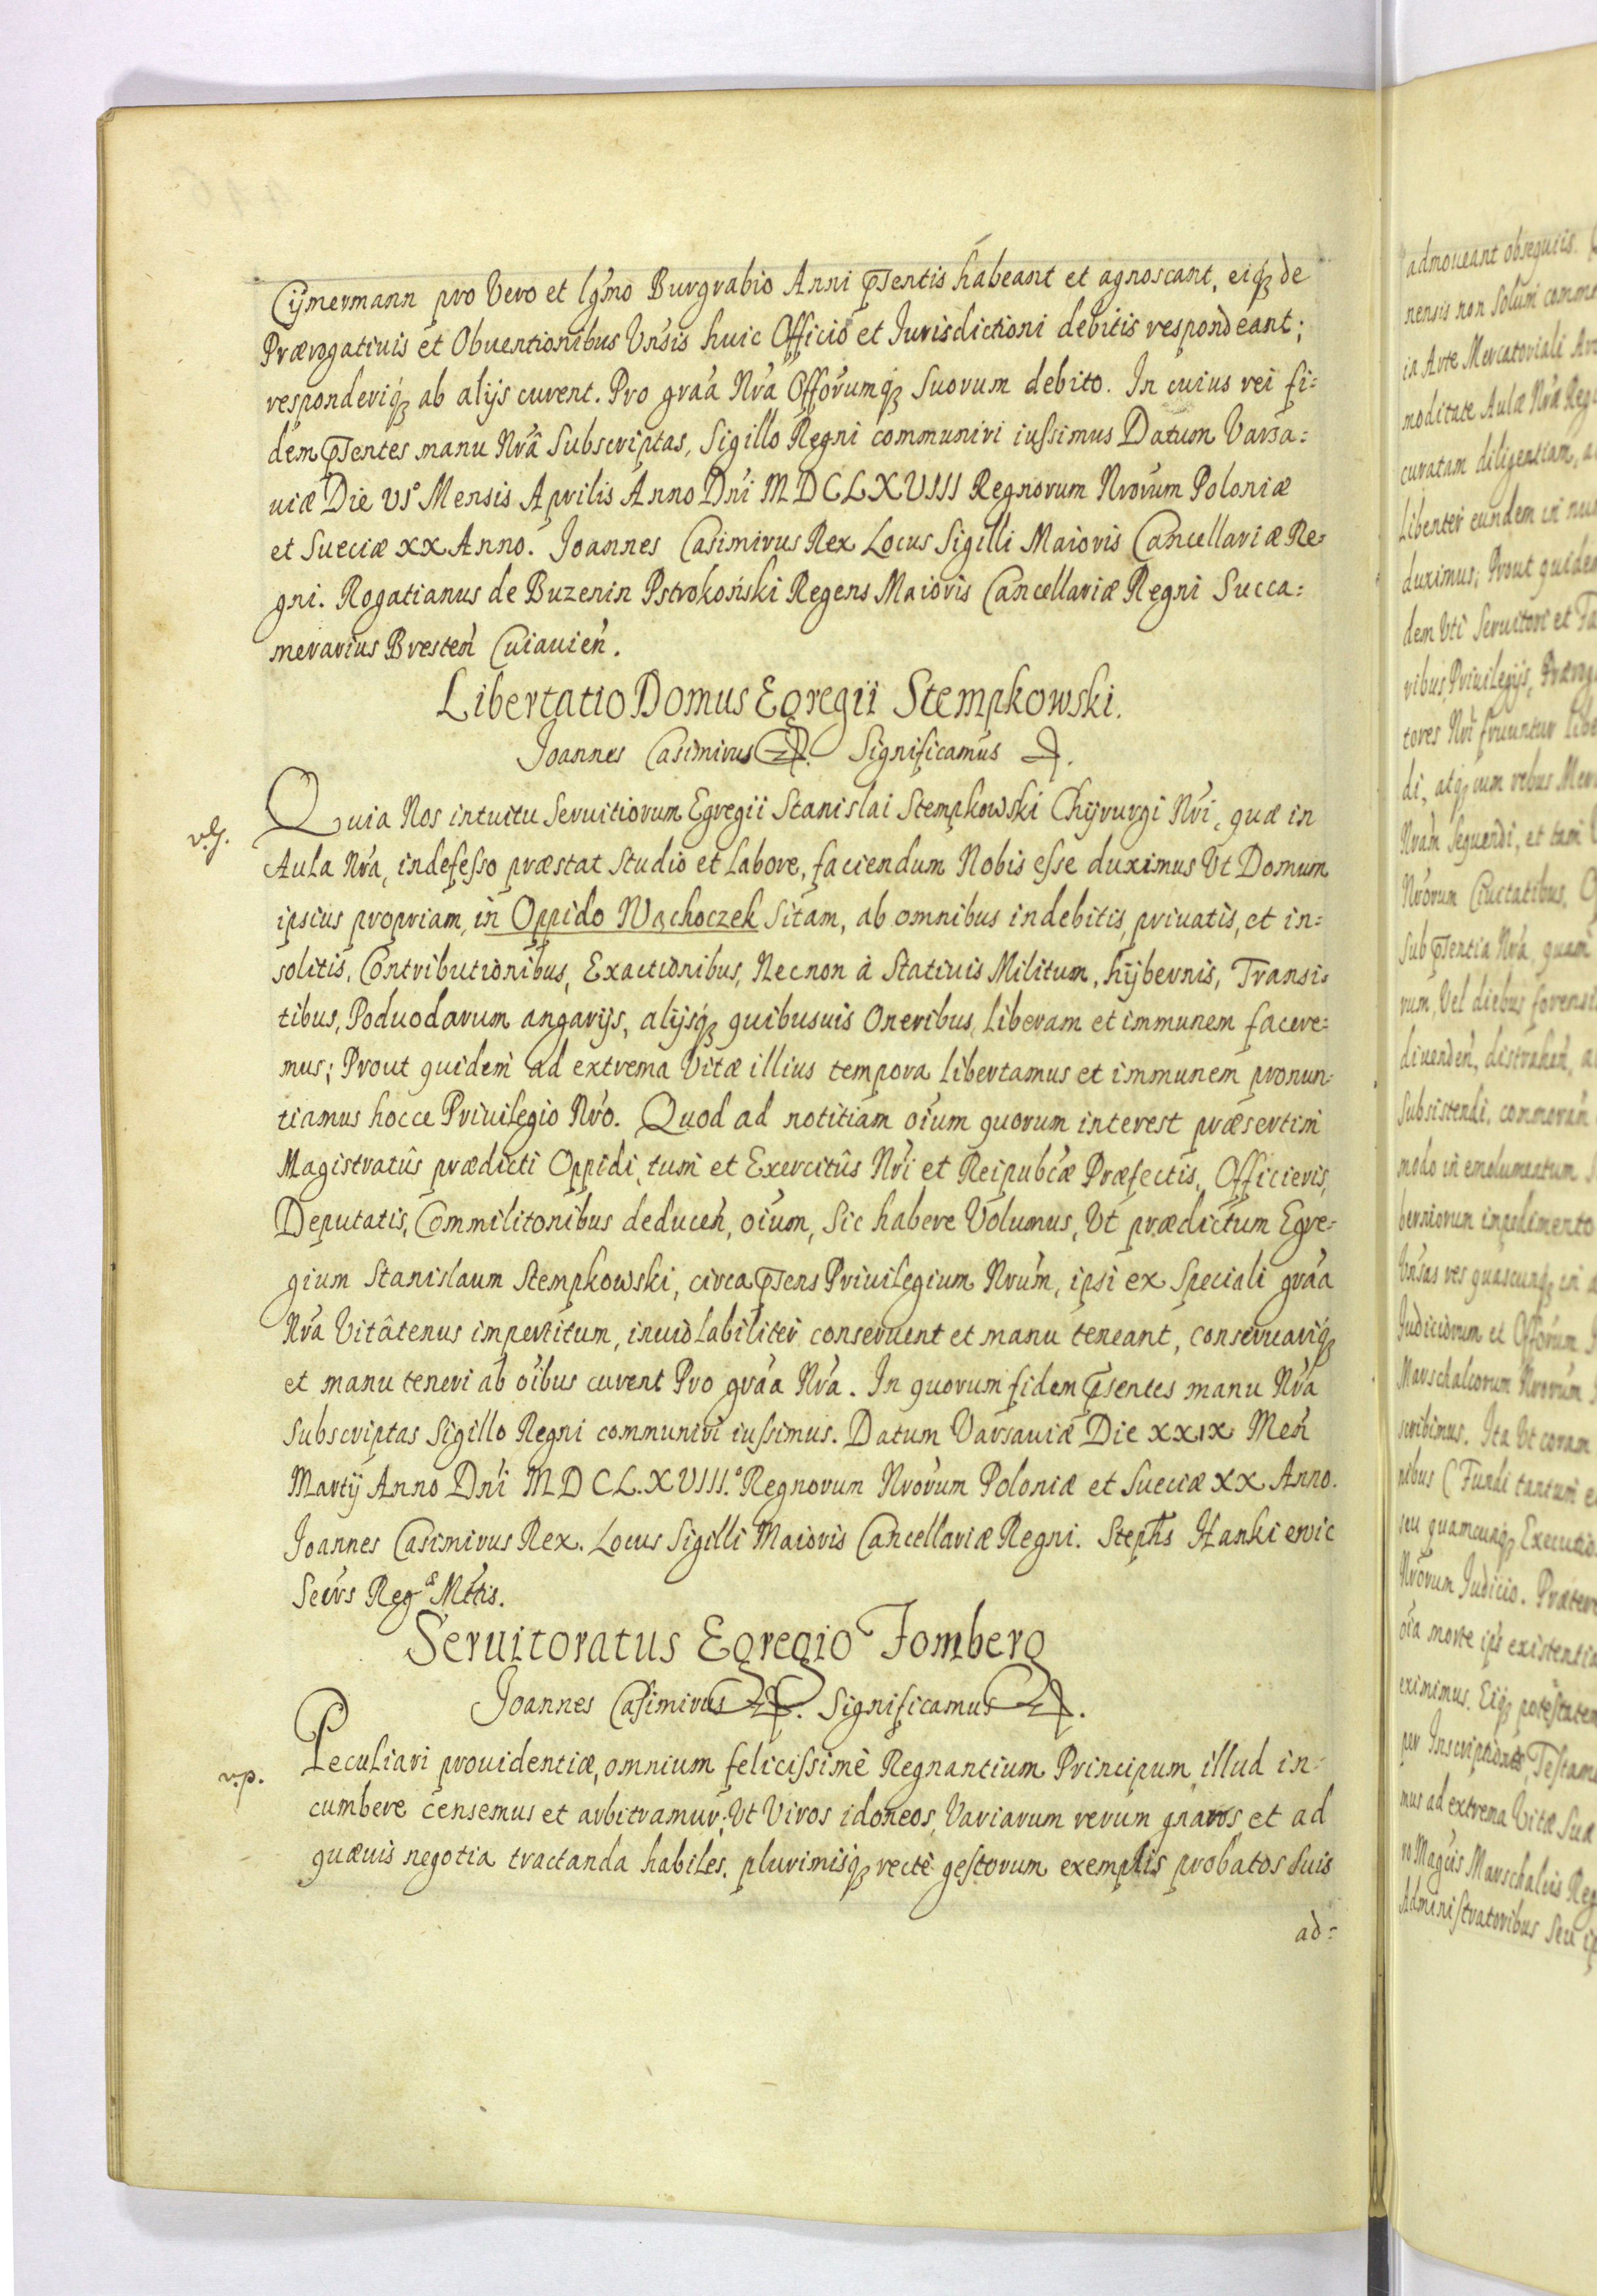 Cijmermann pro Vero et lgĩmo Burgrabio Anni p̃sentis habeant et agnoscant, eiq̃ de
Prærogatiuis et Obuentionibus Vñsis huic Officio et Jurisdictioni debitis respondeant;
responderiq̃ ab alijs curent. Pro gra̅a Nr̃a Offorumq̃ Suorum debito. In cuius rei fi=
dem p̃sentes manu Nr̃â Subscriptas, Sigillo Regni communiri iussimus Datum Varsa=
uiæ Die VIº Mensis Aprilis Anno Dñi MDCLXVIII Regnorum Nrõrum Poloniæ
et Sueciæ XX Anno. Joannes Casimirus Rex Locus Sigilli Maioris Cancellariæ Re=
gni. Rogatianus de Buzenin Pstrokoński Regens Maioris Cancellariæ Regni Succa=
merarius Bresteñ Cuiauieñ.
Libertatio Domus Egregii Stempkowski.
Joannes Casimirus Significamus
Quia Nos intuitu Seruitiorum Egregii Stanislai Stempkowski Chijrurgi Nr̃i, quæ in
Aula Nr̃a, indefesso præstat Studio et Labore, faciendum Nobis esse duximus Vt Domum
ipsius propriam, in Oppido Wąchoczek Sitam, ab omnibus indebitis, priuatis, et in=
solitis, Contributionibus, Exactionibus, Necnon à Statiuis Militum, hijbernis, Transi=
tibus, Poduodarum angarijs, alijsq̃ quibusuis Oneribus, Liberam et immunem facere=
mus; Prout quidem ad extrema Vitæ illius tempora libertamus et immunem pronun=
tiamus hocce Priuilegio Nr̃o. Quod ad notitiam oĩum quorum interest præsertim
Magistratûs prædicti Oppidi, tum et Exercitûs Nr̃i et Reipubcæ Præfectis, Officieris,
Deputatis, Commilitonibus deduceñ, oĩum, Sic habere Volumus, Vt prædictum Egre=
gium Stanislaum Stempkowski, circa p̃sens Priuilegium Nrũm, ipsi ex Speciali gra̅a
Nr̃a Vitâtenus impertitum, inuiolabiliter conseruent et manu teneant, conseruariq̃
et manu teneri ab oĩbus curent Pro gra̅a Nr̃a. In quorum fidem p̃sentes manu Nr̃a
Subscriptas Sigillo Regni communiri iussimus. Datum Varsauiæ Die XXIX Meñ
Martij Anno Dñi MDCL.XVIII.º Regnorum Nrõrum Poloniæ et Sueciæ XX Anno.
Joannes Casimirus Rex. Locus Sigilli Maioris Cancellariæ Regni. Stephs Hankiewic
Secrs Regs Mttis.
Seruitoratus Egregio Jomberg
Joannes Casimirus Significamus
v.p. Peculiari prouidentiæ, omnium felicissimè Regnantium Principum illud in=
cumbere censemus et arbitramur; Vt Viros idoneos, Variarum rerum gnaros et ad
quæuis negotia tractanda habiles, plurimisq̃ rectè gestorum exemplis probatos Suis
ad=
admoueant obsequiis.
nensis non Solum
ia Arte Mercatoriali
moditate Aulæ Nr̃æ
curatam diligentiam,
Libenter eundem in
duximus; Prout
dem Vti Seruitori et
ribus, Priuilegijs,
tores Nr̃i fruuntur
di, atq̃ cum rebus
Nram Sequendi, et tam
Nrõrum Ciuitatibus,
Sub p̃sentia Nr̃a, quam
rum, Vel diebus
diuendeñ, distraheñ,
Subsistendi, commorañ
modo in emolumentum
berniorum impedimento
Vñsas res quascunq̃ in
Judiciorum et Offorum
Marschalcorum Nrõrum
scribimus. Ita Vt coram
nibus (Fundi tantum
seu quamcunq̃
Nrõrum Judicio.
oĩa morte ips
eximimus. Eiq̃ potestatem
per Inscriptiones,
mus ad extrema Vitæ Suæ
Marschalcis
Administratoribus Seu